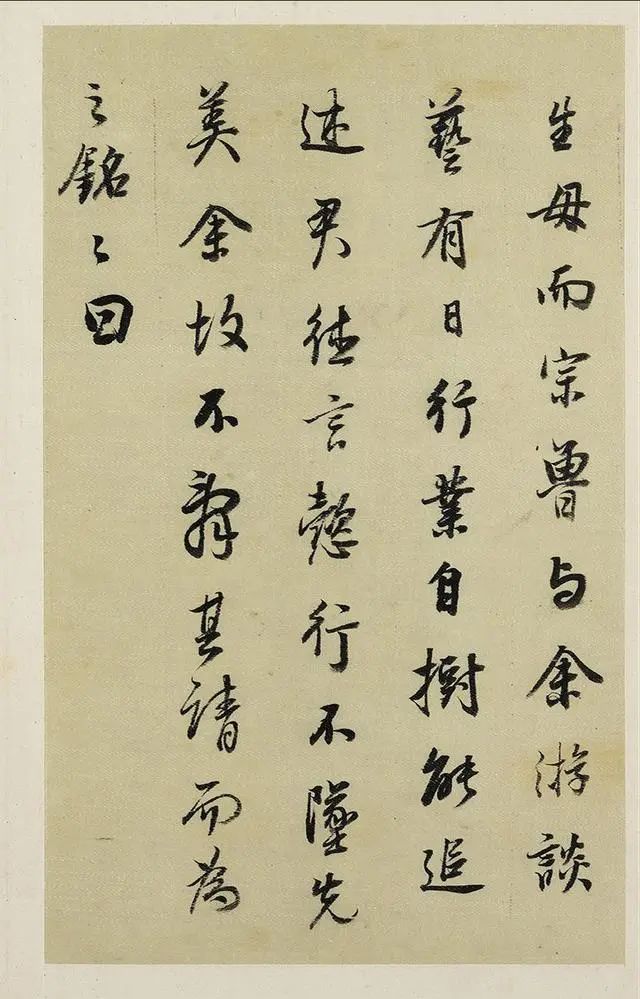 生母而宗魯与余游談
藝有日行業自樹能追
述君德言懿行不墜先
美余故不辭其請而為
之銘々曰